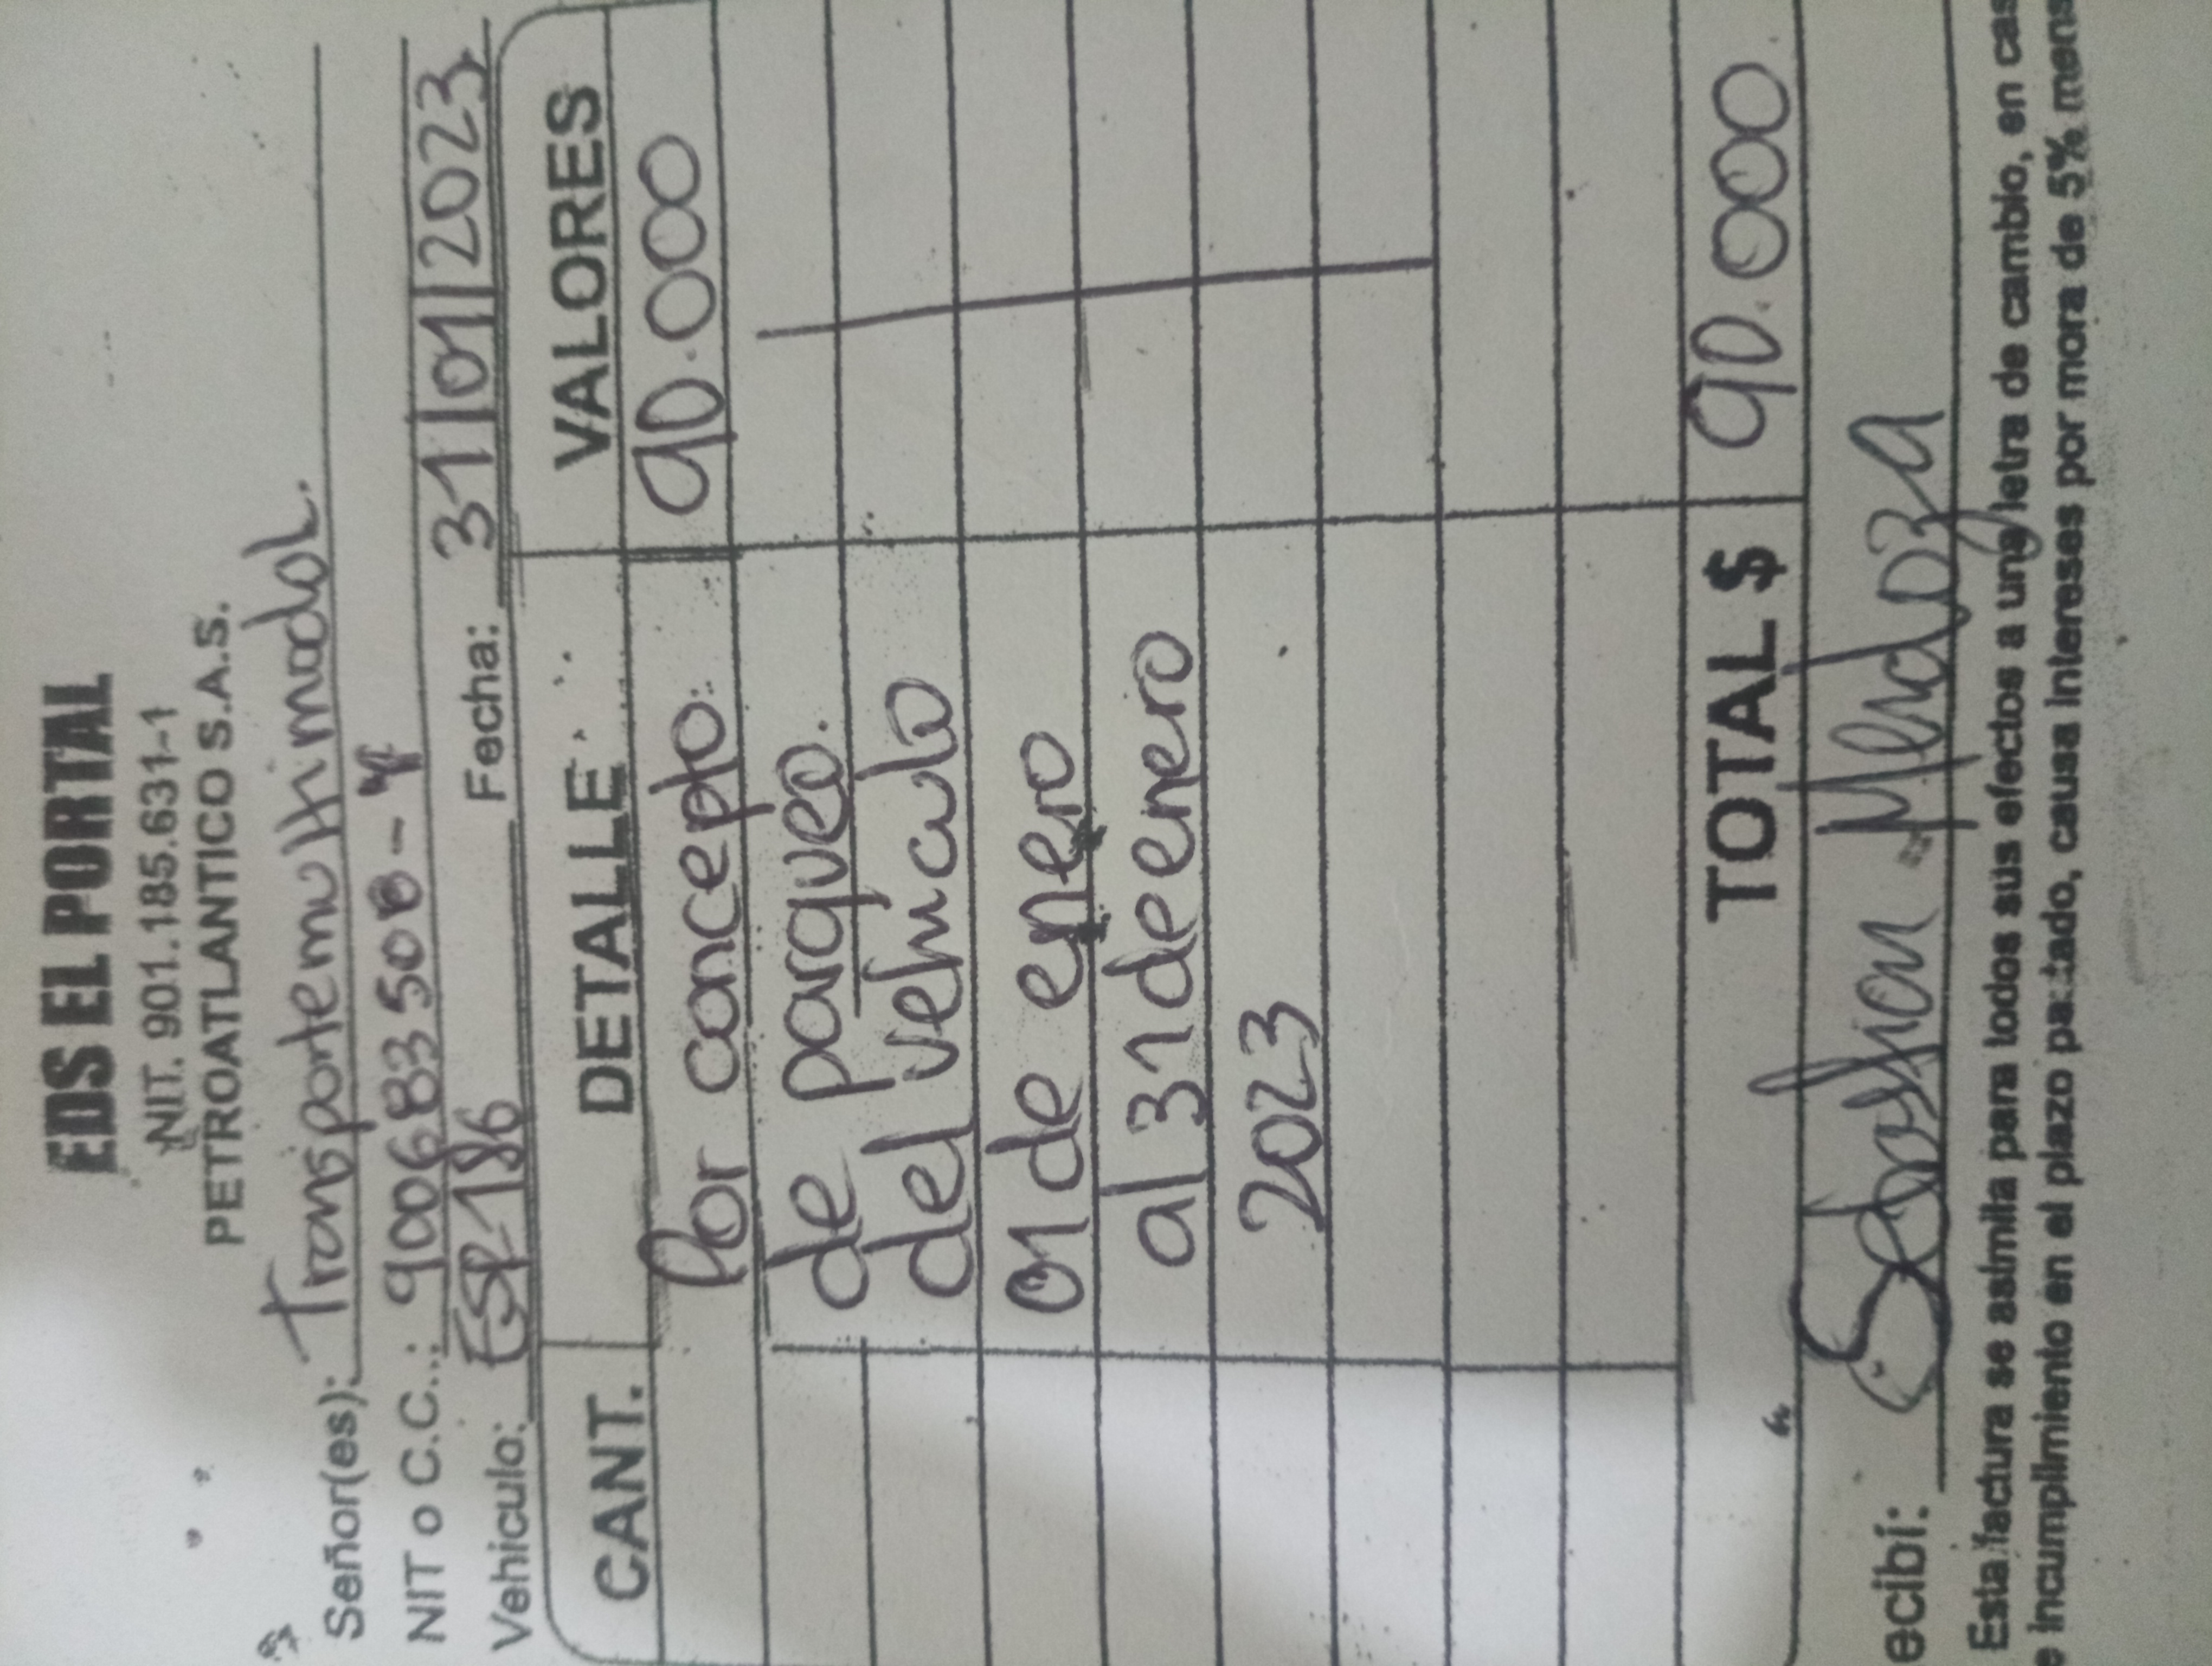 EDS EL PORTAL
NIT. 901.185.631-1
PETROATLANTICO S.A.S.
Señor(es): Transportemultimodal.
NIT o C.C.: 900683508-4
Vehículo: ESP186 Fecha: 31 01 2023
CANT. DETALLE VALORES
Por concepto. 90.000
de parqueo.
del vehiculo
01 de enero
al 31 de enero
2023
TOTAL $ 90.000
ecibí: Mendoza
Esta factura se asimila para todos sus efectos a una letra de cambio, en cas
e incumplimiento en el plazo pactado, causa intereses por mora de 5% mens